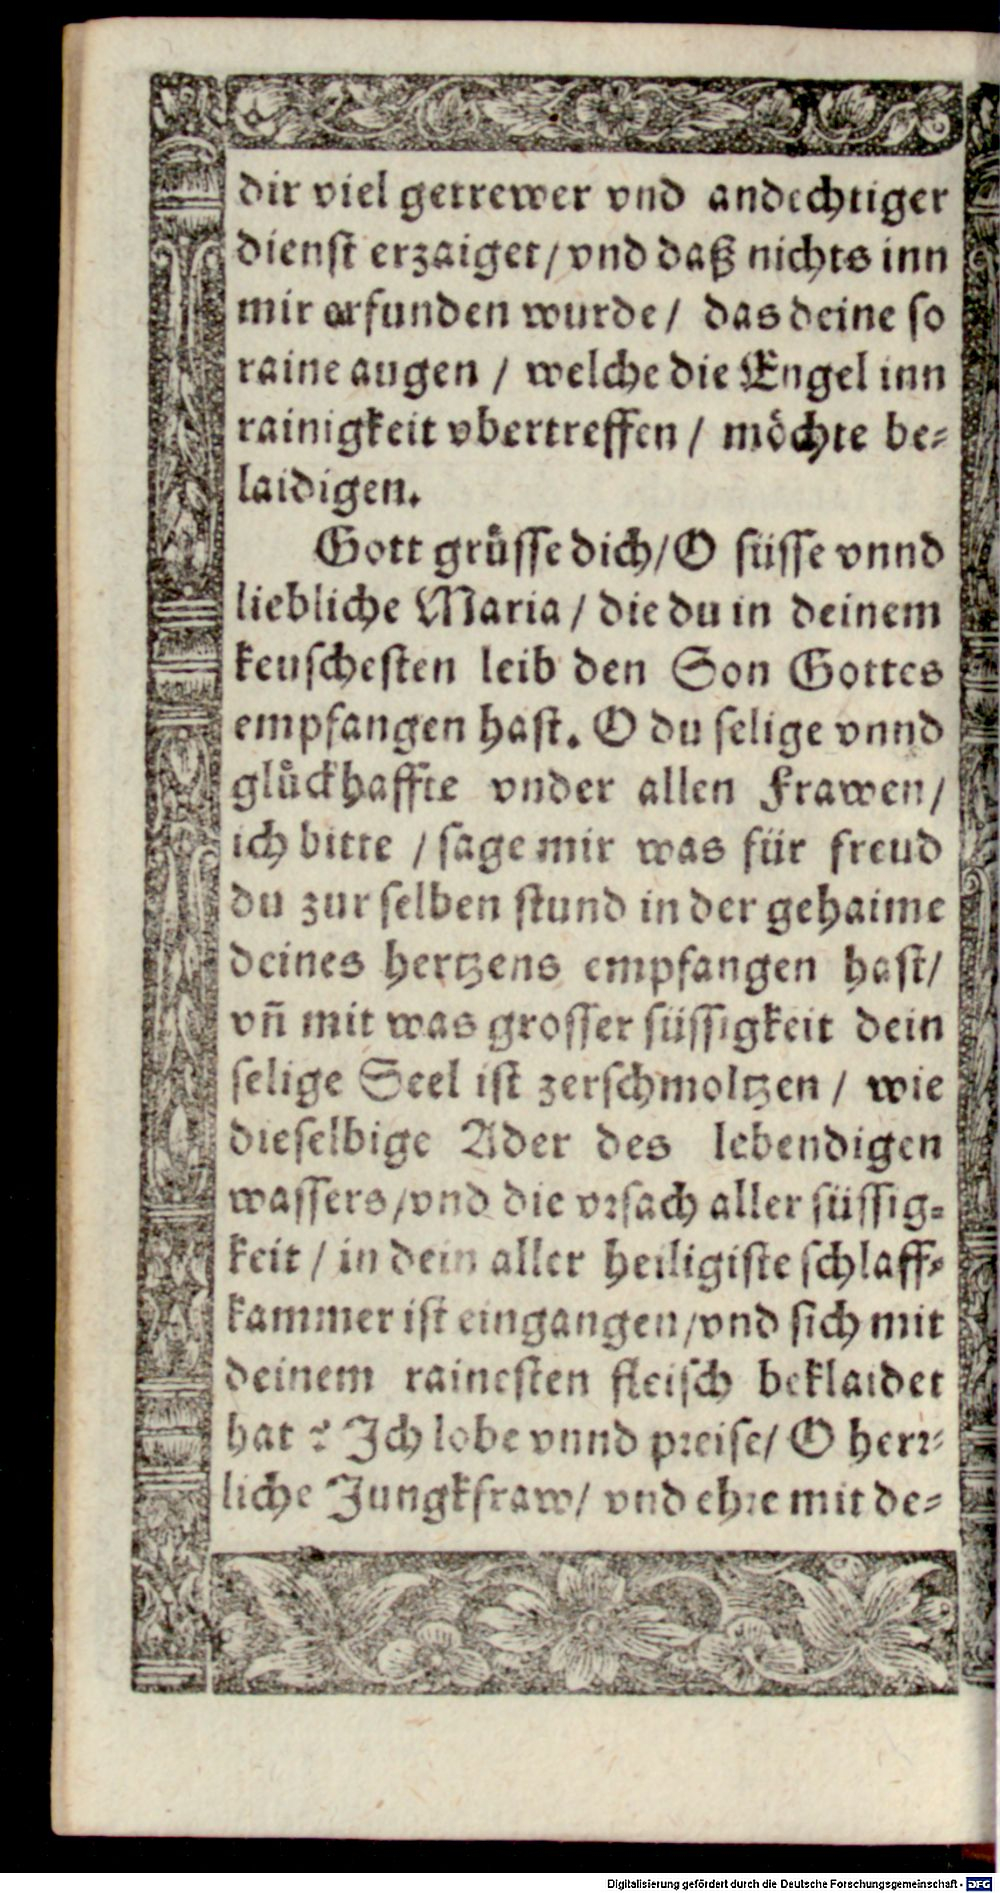 dir viel getrewer vnd andechtiger
dienſt erzaiget / vnd daß nichts inn
mir erfunden wurde / das deine ſo
raine augen / welche die Engel inn
rainigkeit vbertreffen / möchte be⸗
laidigen.
Gott grüſſe dich / O ſüſſe vnnd
liebliche Maria / die du in deinem
keuſcheſten leib den Son Gottes
empfangen haſt. O du ſelige vnnd
glückhaffte vnder allen Frawen /
ich bitte / ſage mir was für freud
du zur ſelben ſtund in der gehaime
deines hertzens empfangen haſt /
vñ mit was groſſer ſüſſigkeit dein
ſelige Seel iſt zerſchmoltzen / wie
dieſelbige Ader des lebendigen
waſſers / vnd die vꝛſach aller ſüſſig⸗
keit / in dein aller heiligiſte ſchlaff⸗
kammer iſt eingangen / vnd ſich mit
deinem raineſten fleiſch beklaidet
hat? Ich lobe vnnd pꝛeiſe / O herꝛ⸗
liche Jungkfraw / vnd ehꝛe mit de⸗
Digitalisierung gefördert durch die Deutsche Forschungsgemeinschaft - DFG